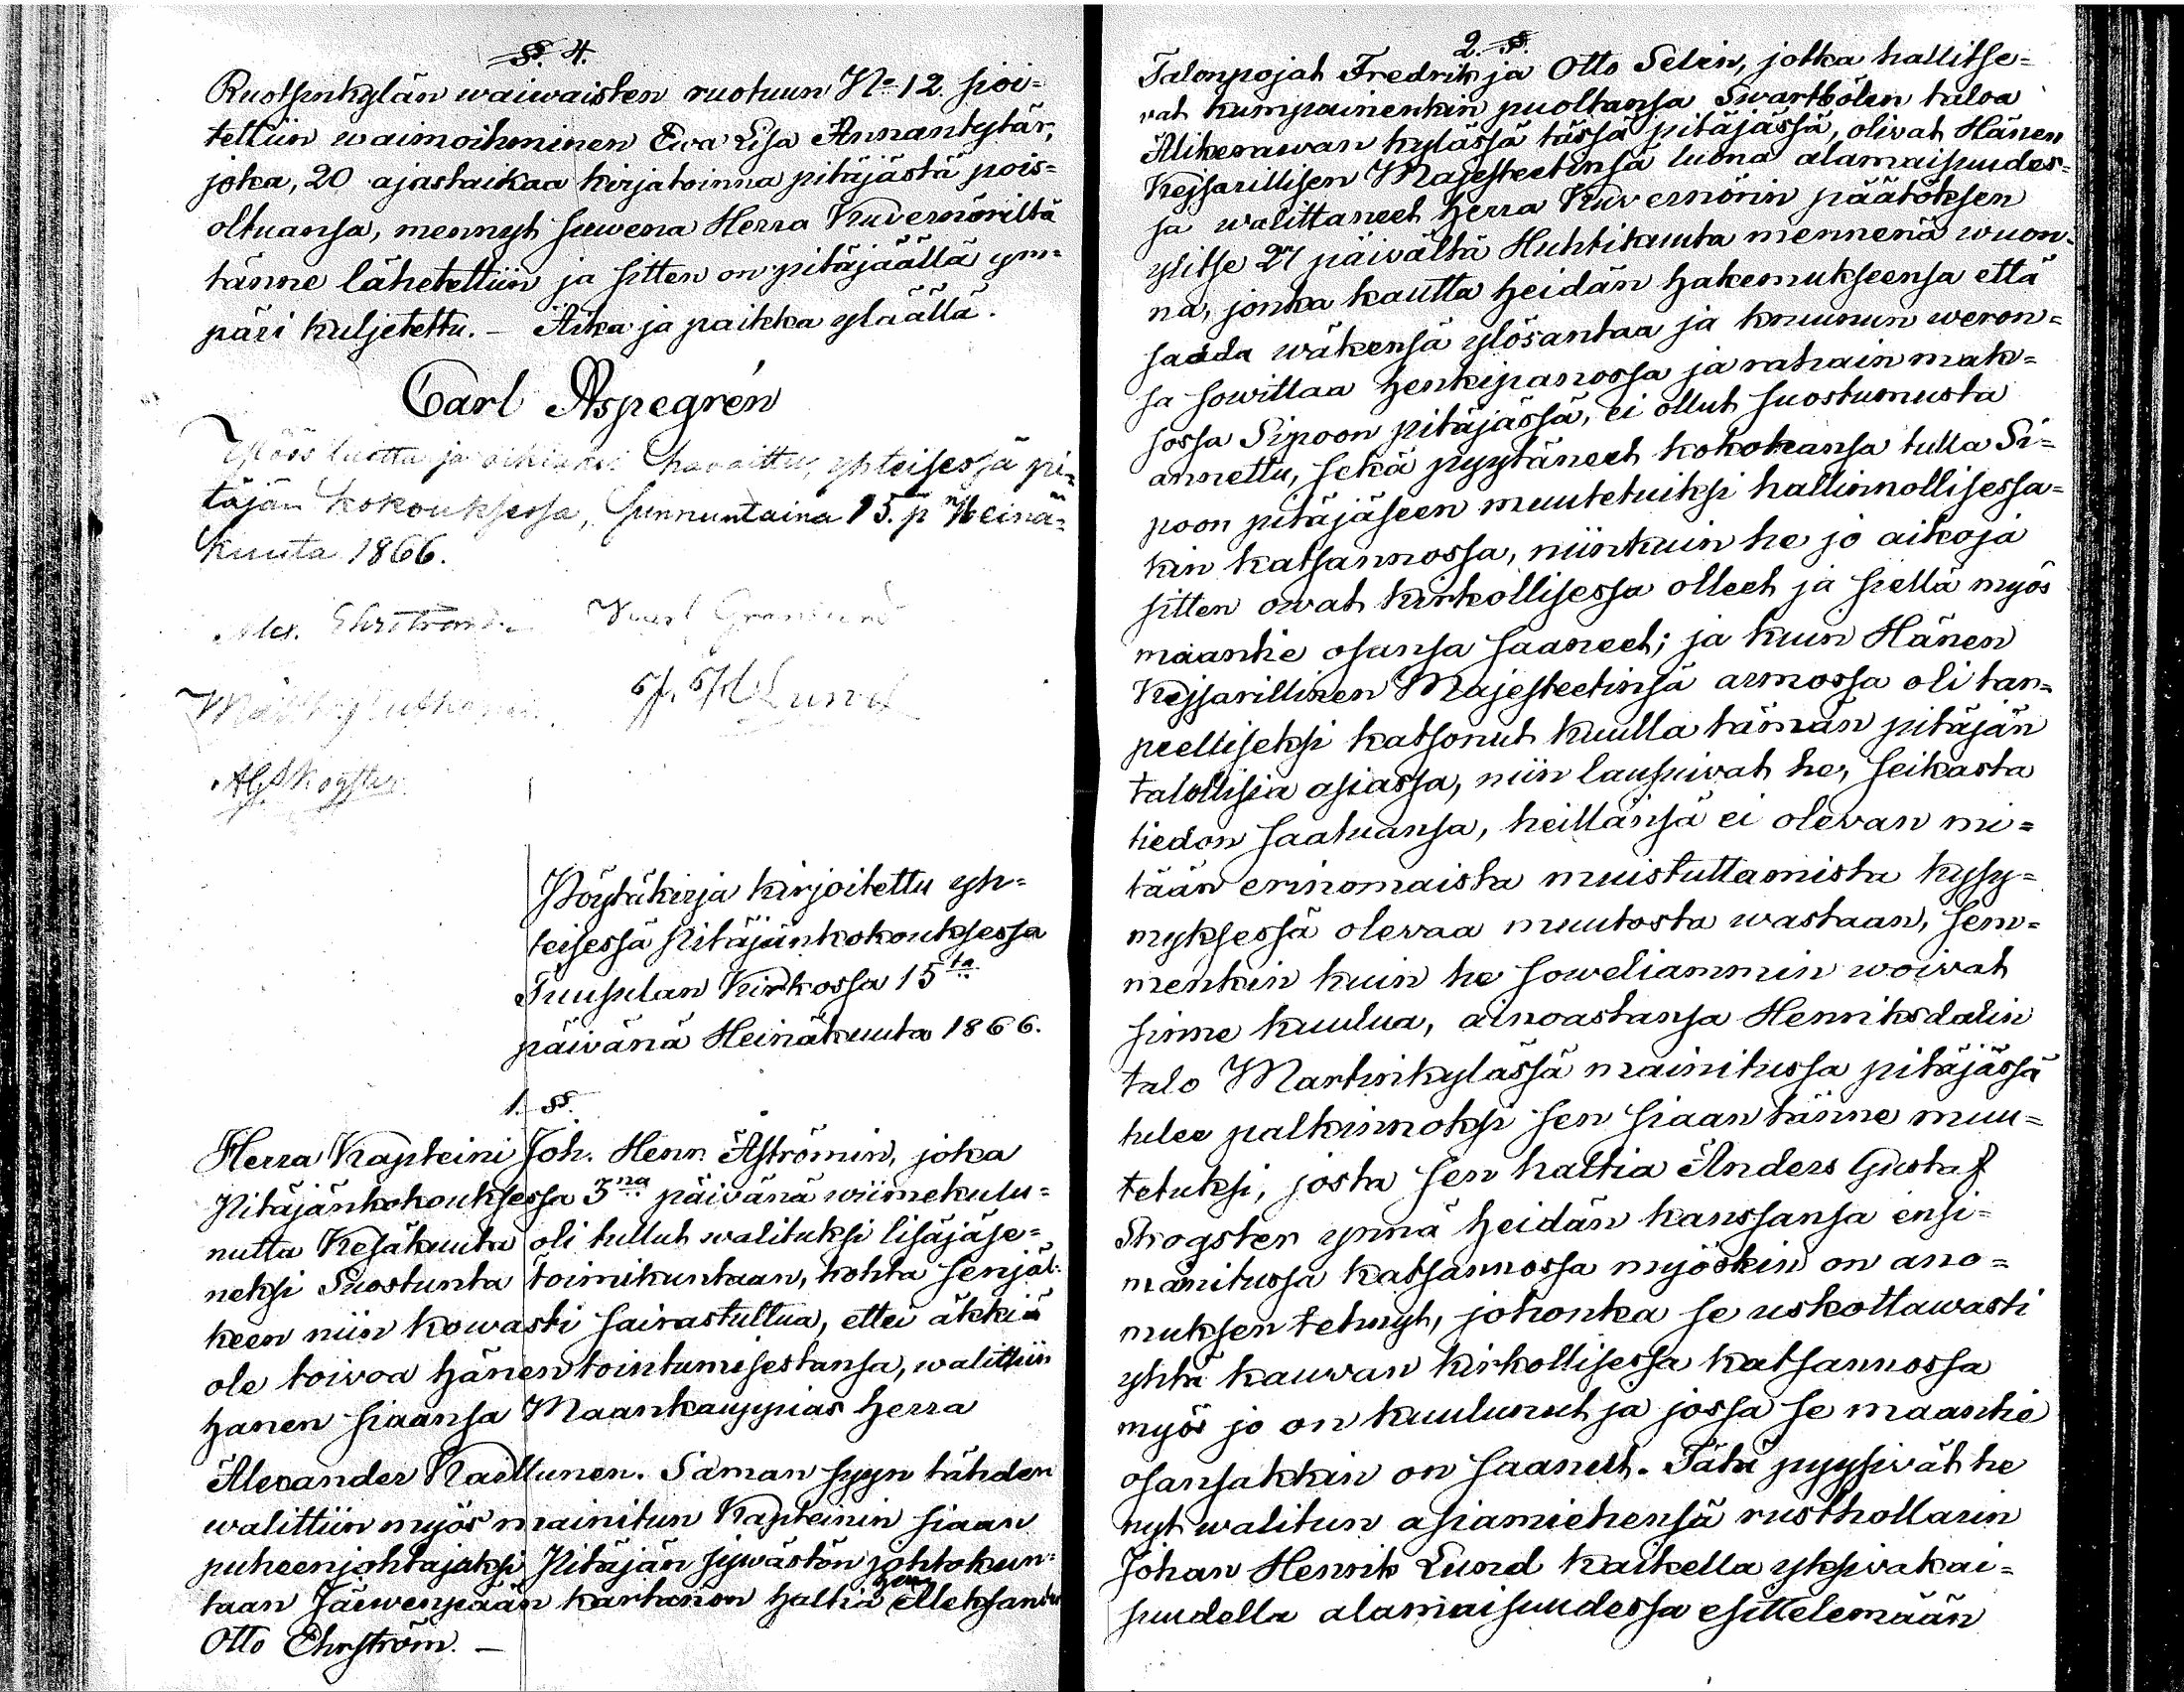 §. 4.
Ruotsinkylän waiwaisten ruotuun No 12. sioi=
tettiin waimoihminen Ewa Lisa Annantytär,
joka, 20 ajastaikaa kirjatoinna pitäjästä pois=
oltuansa, mennyt suwena Herra Kuvernöriltä
tänne lähetettiin ja sitten on pitäjäällä ym=
päri kuljetettu. – Aika ja paikka ylääliä.
Carl Aspegrén
Ylöös luettu ja oikiaksi havaittu, yhteisessä pi=
täjän kokouksessa, Sunnuntaina 15. p nä Heinä=
kuuta 1866.
Alex. Ehrström Granlund
J. H Lund
AG Skogster
Pöytäkirja kirjoitettu yh=
teisessä Pitäjänkokouksessa
Tuusulan Kirkossa 15ta
päivänä Heinäkuuta 1866.
1. §§.
Herra Kapteini Joh. Henr. Åströmin, joka
Pitäjänkokouksessa 3na päivänä wiimekulu=
nutta Kesäkuuta oli tullut walituksi lisäjäse=
neksi Suostunta toimikuntaan, kohta senjäl=
keen niin kowasti sairastuttua, ettei äkkiä
ole toivoa hänen tointumisestansa, walittiin
hänen siaansa Maankauppias Herra
Alexander Kaellunen. Saman syyn tähden
walittiin myös mainitun Kapteinin siaan
puheenjohtajaksi Pitäjän sywästön johtokun=
taan Jäewenpään kartanon haltia herra Alleksander
Otto Ehrström. –
2. §.
Talonpojat Fredrik ja Otto Selin, jotka hallitse=
vat kumpainenkin puoltansa Swartbölen taloa
Alikerawan kylässä tässä pitäjässä, olivat Hänen
Kejsarillisen Majesteetinsä luona alamaisuudes=
sa walittaneet Herra Kuvernörin päätöksen
ylitse 27 päivältä Huhtikuuta mennenä wuon=
na, jonka kautta heidän hakemukseensa että
saada wäkensä ylösantaa ja kruunun weron=
sa sowittaa henkipanossa ja rahain mak=
sossa Sipoon pitäjässä, ei ollut suostumusta
annettu, sekä pyytäneet kokokansa tulla Si=
poon pitäjäseen muutetuiksi hallinnollisessa=
kin katsannossa, niinkuin he jo aikoja
sitten owat kirkollisessa olleet ja siellä myös
maantie osansa saaneet; ja kuin Hänen
Kejsarillinen Majesteetinsä armossa oli tar=
peelliseksi katsonut kuulla tämän pitäjän
talollisia asiassa, niin lausuivat he, seikasta
tiedon saatuansa, heillänsä ei olevan mi=
tään erinomaista muistuttamista kysy=
myksessä olevaa muutosta wastaan, sem=
menkin kuin he soweliammin woivat
sinne kuulua, ainoastansa Henriksdalin
talo Martinkylässä mainitussa pitäjässä
tulee palkinnoksi sen siaan tänne muu=
tetuksi, josta sen haltia Anders Gustaf
Skogster ynnä heidän kanssansa ensi=
mainitussa katsannossa myöskin on ano=
muksen tehnyt, johonka se uskottawasti
yhtä kauwan kirkollisessa katsannossa
myös jo on kuulunut ja jossa se maantie
osansakkin on saanut. Tätä pyysivät he
nyt walitun asiamiehensä rusthollarin
Johan Henrik Lund kaikella yksivakai=
suudella alamaisuudessa esittelemään